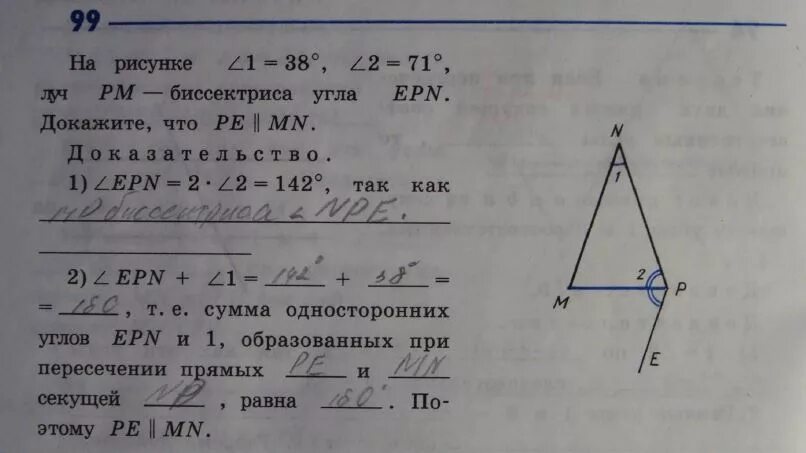 99
На рисунке ∠1 = 38°, ∠2 = 71°,
луч PM — биссектриса угла EPN.
Докажите, что PE ∥ MN.
Доказательство.
1) ∠EPN = 2 · ∠2 = 142°, так как
биссектриса ∠ NPE.
2) ∠ EPN + ∠1 = 142° + 38° =
= 180, т. е. сумма односторонних
углов EPN и 1, образованных при
пересечении прямых PE и MN
секущей NP, равна 180°. По-
этому PE ∥ MN.
N
1
2
M
P
E